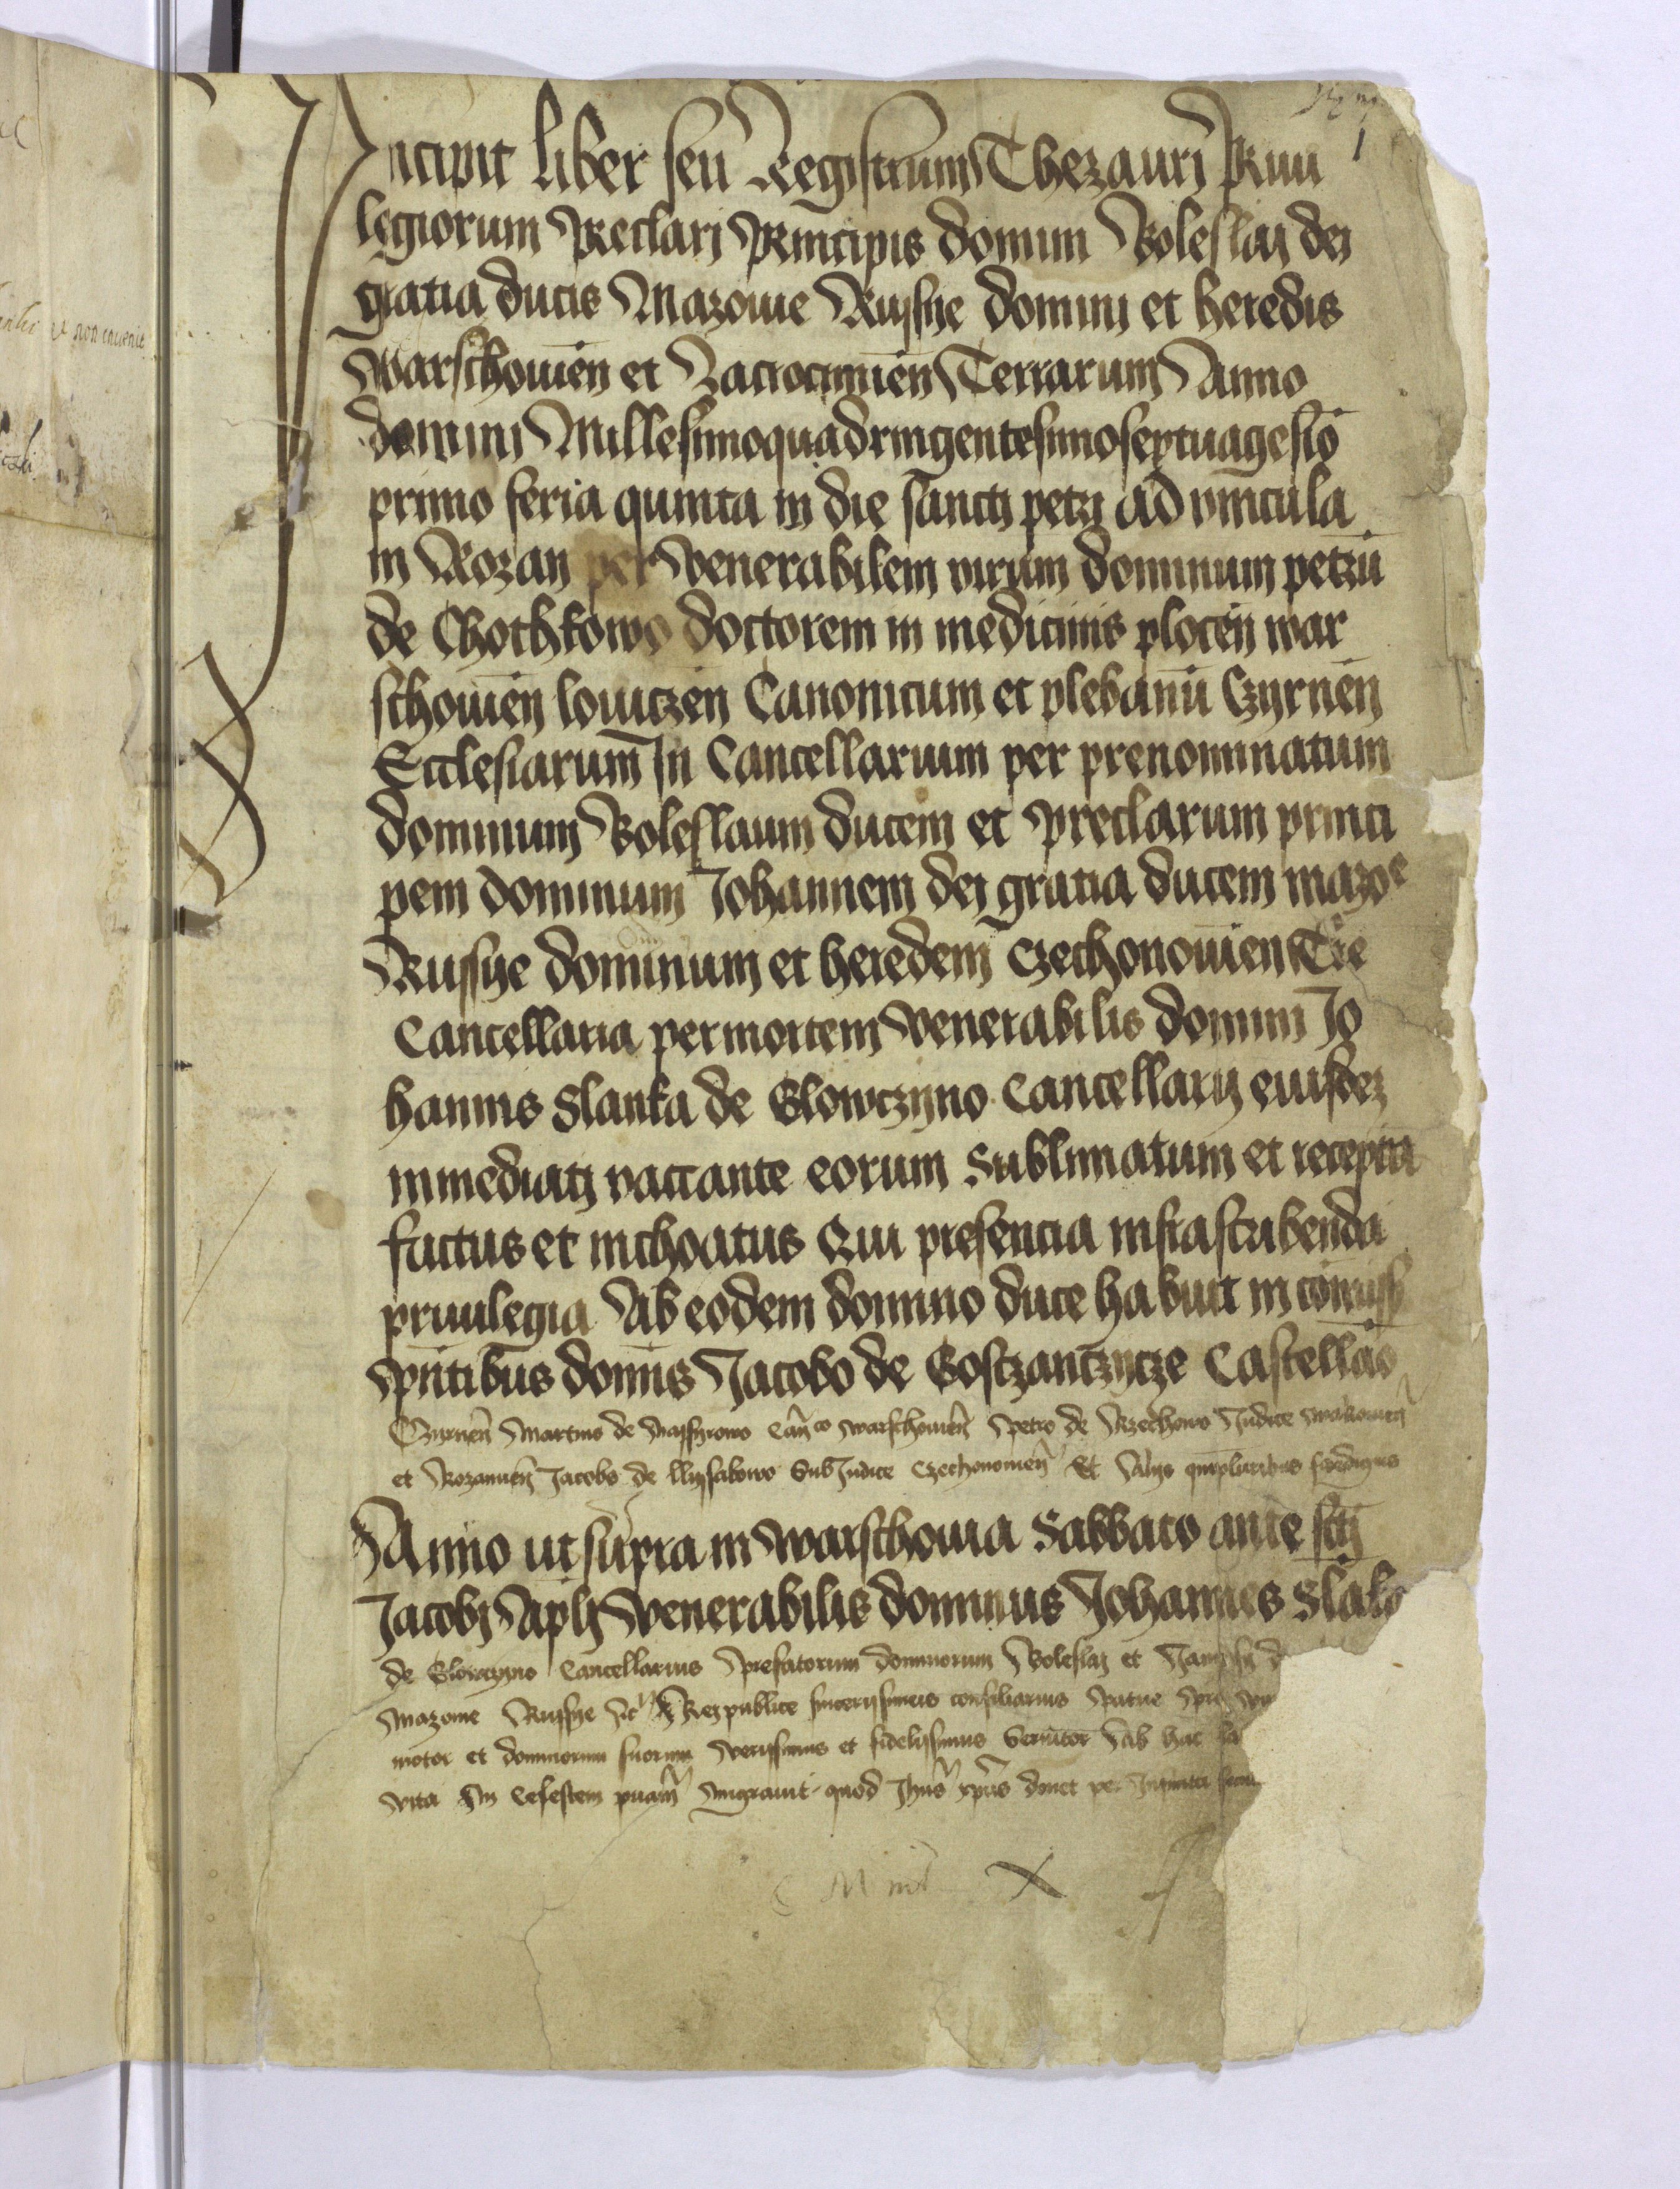 Incipit liber seu Registrum Thezaurj Priui
legiorum Preclarj Principis domini Boleslaj dej
gratia ducis Mazouie Russye dominj et heredis
warschouien̄ et Zacrocimien̄ Terrarum Anno
domini Millesimoquadringentesimoseptuagesīo
primo feria quinta in die sanctj petrj ad vincula
in Rozan per venerabilem virum dominum petrū
de Chothkowo doctorem in medicinis plocen̄ war
schouien̄ louiczen̄ Canonicum et plebanū Czyrnen̄
Ecclesiarum In Cancellarium per prenominatum
dominum Boleslaum ducem et preclarum princi
pem dominum Johannem dej gratia ducem mazoe
Russye dominum et heredem Czechonouien̄ Tre
Cancellaria per mortem venerabilis domini Jo
hannis Slanka de Glowczyno Cancellarij eiusdez
immediatj vaccante eorum Sublimatum et receptū
factus et inchoatus Qui presencia infrascribenda
priuilegia Ab eodem domino duce habuit in cōmiss
pn̄tibus domīs Jacobo de Gostzanczycze Castellāo
Czyrnen̄ Martino de Cān̄co warschouien̄ petro de Rzechowo Judice makouien̄
et Rozanien̄ Jacobo de SubJudice Czechonouien̄ Et Alijs quāpluribus fidedignis
Anno ut supra in warschouia Sabbato ante sctj
Jacobj Aplj venerabilis dominus Johannes Slāka
de Glowczyno Cancellarius prefatorum dominorum Boleslaj et
Mazouie Russye Reipublice sincerissimus consiliarius
motor et dominorum suorum verissimus et fidelissimus Seruitor Ab hac
vita In Celestem migrauit quod Jhus xpūs donet per
X